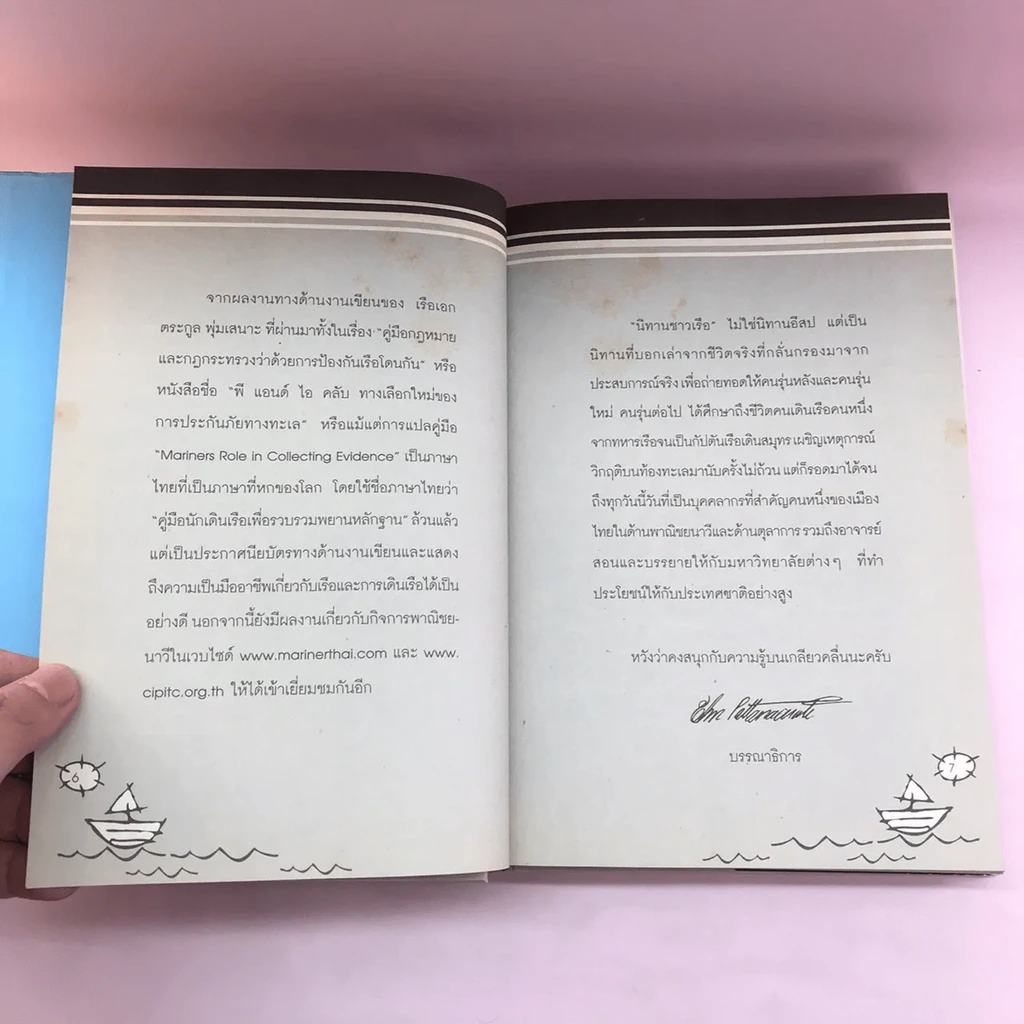 จากผลงานทางด้านงานเขียนของ เรือเอก
ตระกูล พุ่มเสนาะ ที่ผ่านมาทั้งในเรื่อง “คู่มือกฎหมาย
และกฎกระทรวงว่าด้วยการป้องกันเรือโดนกัน” หรือ
หนังสือชื่อ “พี แอนด์ ไอ คลับ ทางเลือกใหม่ของ
การประกันภัยทางทะเล” หรือแม้แต่การแปลคู่มือ
“Mariners Role in Collecting Evidence” เป็นภาษา
ไทยที่เป็นภาษาที่หกของโลก โดยใช้ชื่อภาษาไทยว่า
“คู่มือนักเดินเรือเพื่อรวบรวมพยานหลักฐาน” ล้วนแล้ว
แต่เป็นประกาศนียบัตรทางด้านงานเขียนและแสดง
ถึงความเป็นมืออาชีพเกี่ยวกับเรือและการเดินเรือได้เป็น
อย่างดี นอกจากนี้ยังมีผลงานเกี่ยวกับกิจการพาณิชย-
นาวีในเวบไซด์ www.marinerthai.com และ www.
cipitc.org.th ให้ได้เข้าเยี่ยมชมกันอีก
6
“นิทานชาวเรือ” ไม่ใช่นิทานอีสป แต่เป็น
นิทานที่บอกเล่าจากชีวิตจริงที่กลั่นกรองมาจาก
ประสบการณ์จริง เพื่อถ่ายทอดให้คนรุ่นหลังและคนรุ่น
ใหม่ คนรุ่นต่อไป ได้ศึกษาถึงชีวิตคนเดินเรือคนหนึ่ง
จากทหารเรือจนเป็นกัปตันเรือเดินสมุทร เผชิญเหตุการณ์
วิกฤติบนท้องทะเลมานับครั้งไม่ถ้วน แต่ก็รอดมาได้จน
ถึงทุกวันนี้วันที่เป็นบุคคลากรที่สำคัญคนหนึ่งของเมือง
ไทยในด้านพาณิชยนาวีและด้านตุลาการ รวมถึงอาจารย์
สอนและบรรยายให้กับมหาวิทยาลัยต่างๆ ที่ทำ
ประโยชน์ให้กับประเทศชาติอย่างสูง
หวังว่าคงสนุกกับความรู้บนเกลียวคลื่นนะครับ
บรรณาธิการ
7